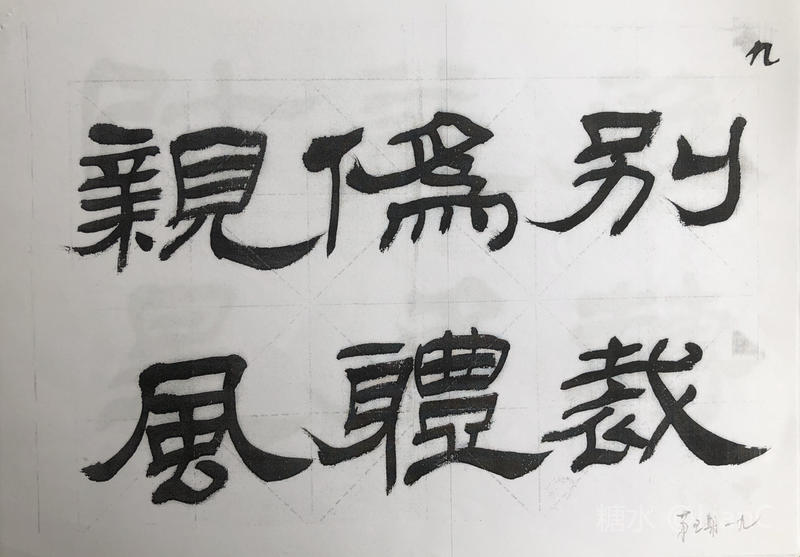 九
別裁
僞體
親風
第五期 一九
糖水